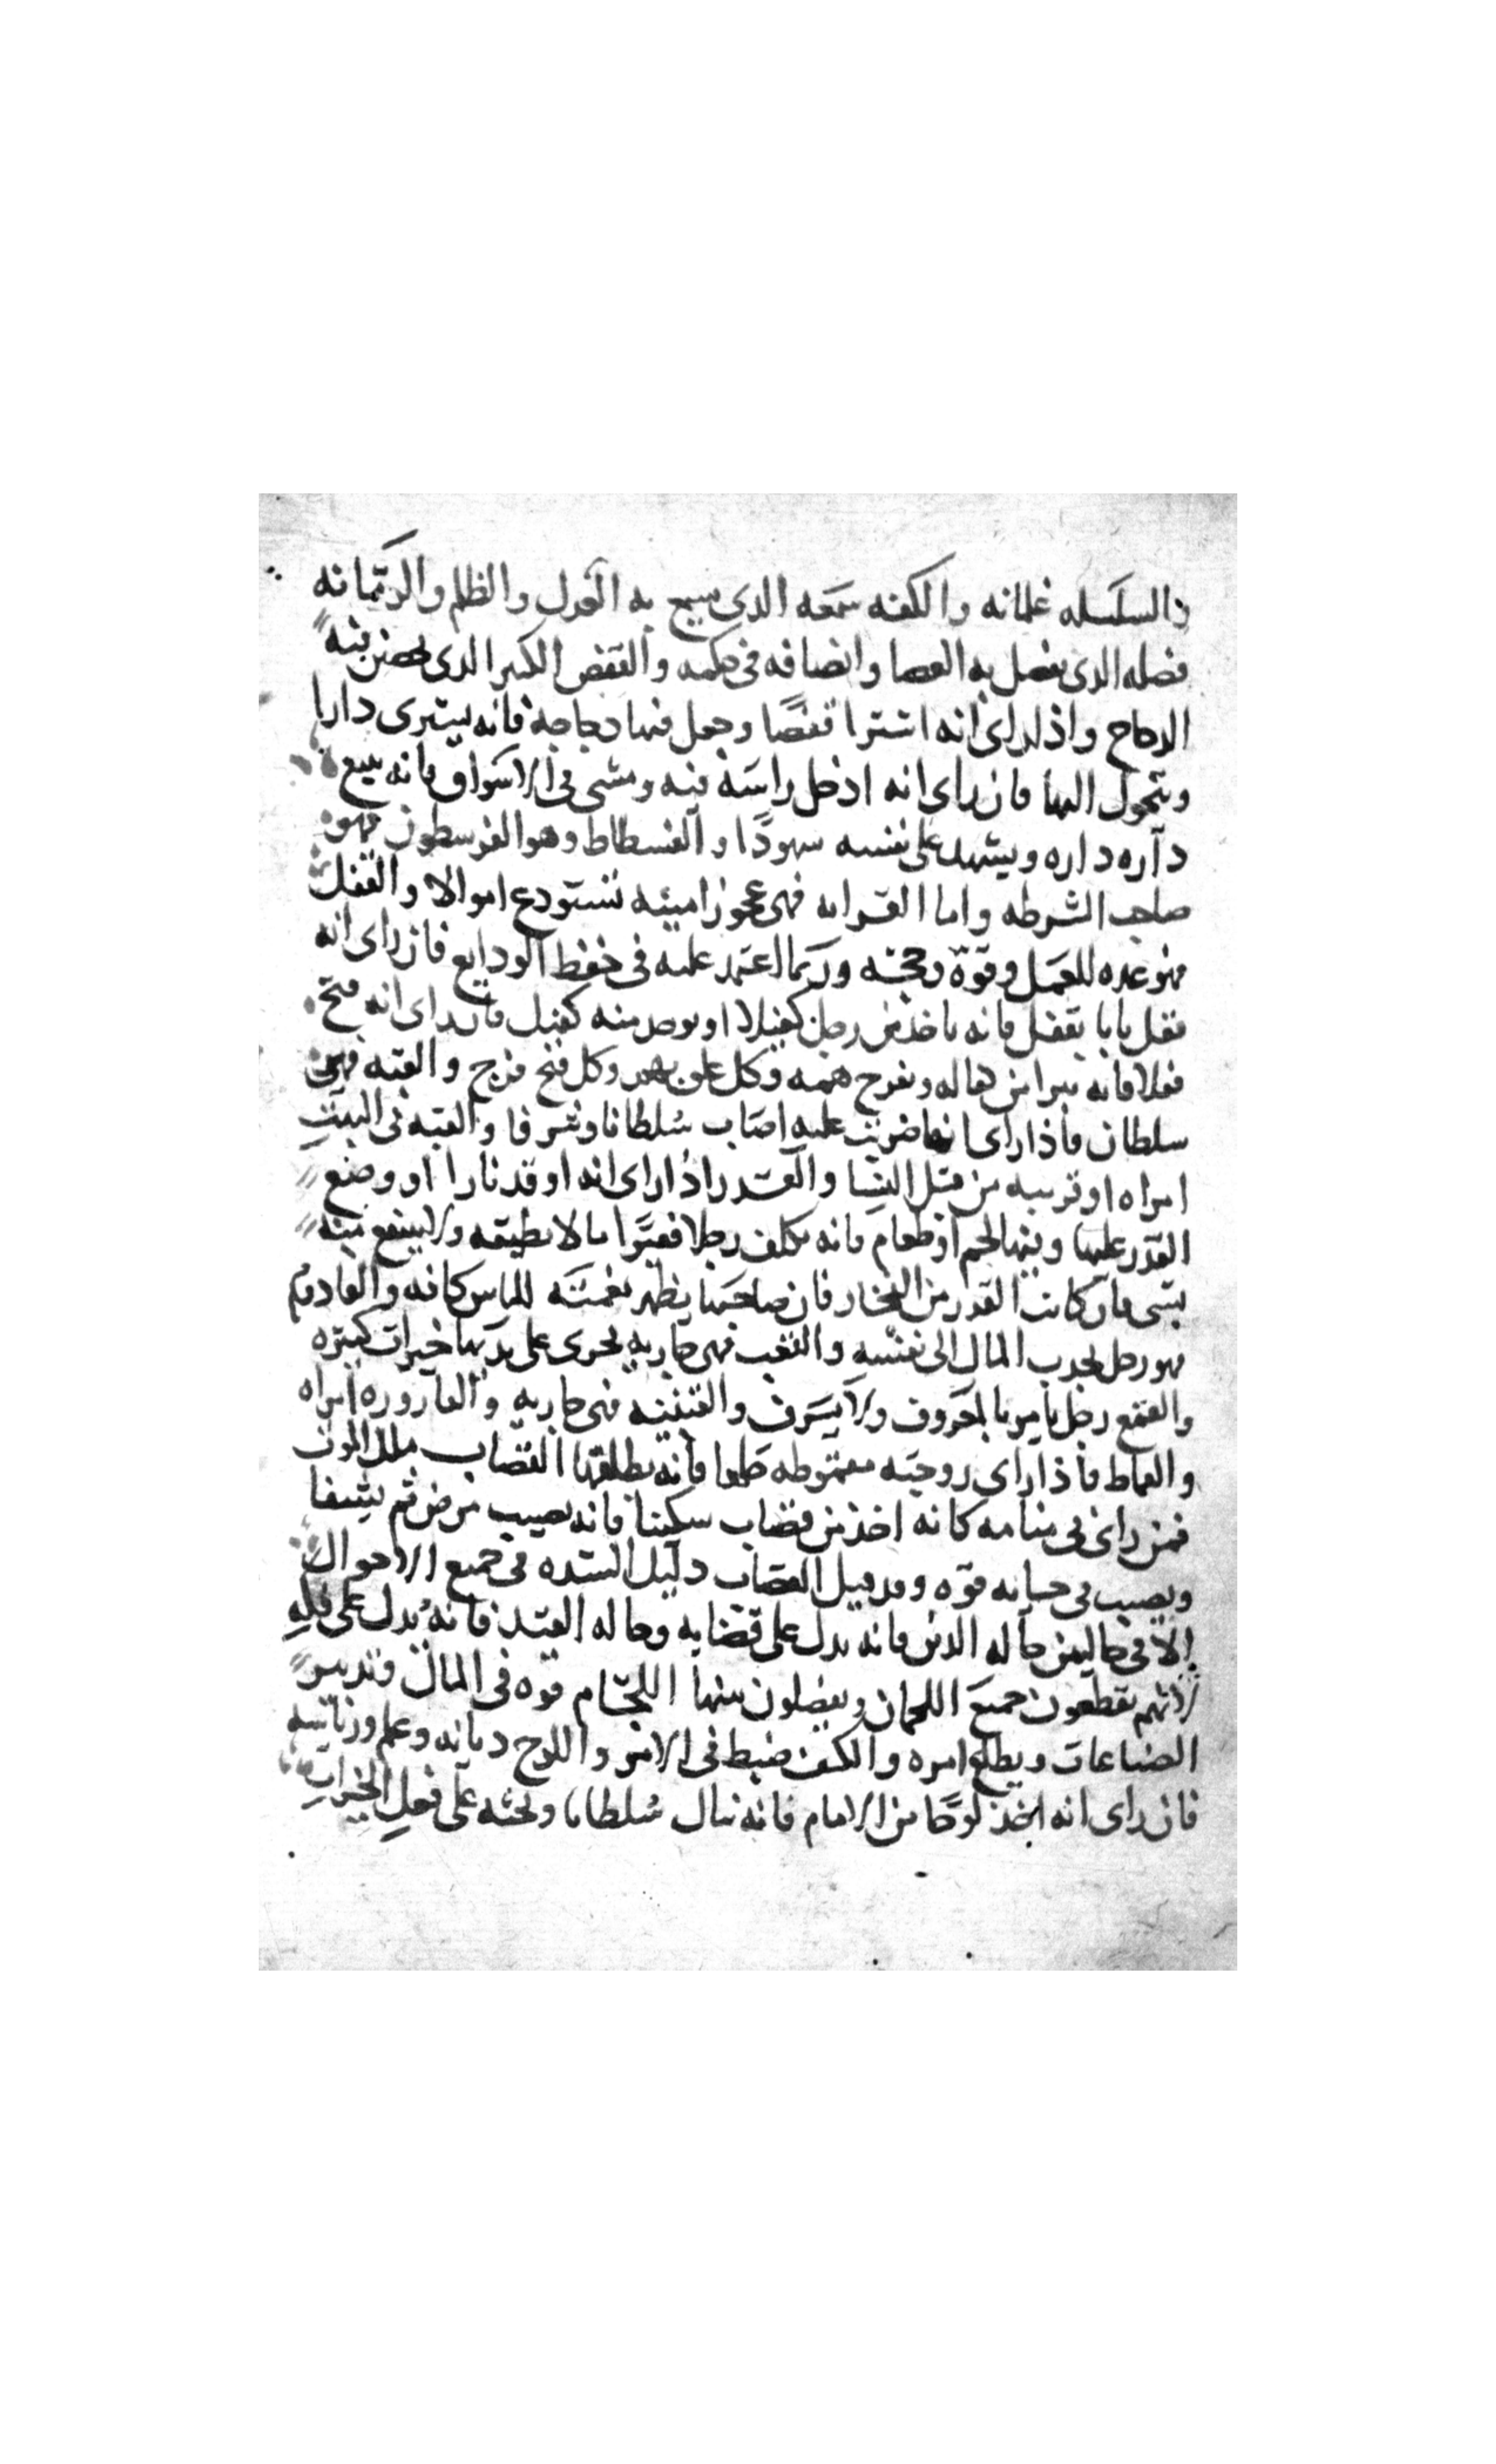 والسلسله غلمانه والكفه سمعه الدى سمع به العدل والظلم والرمانه
فضله الدى يفصل به القضا وانصافه فى حكمه والقفص الكبير الدى يحضن فيه
الدجاج واذا راى انه اشترا قفصًا وجعل فيها دجاجة فانه يشترى دارا
ويتحول اليها فان راى انه ادخل راسه فيه ومشى فى الاسواق فانه يبيع
داره داره ويشهد على نفسه شهودًا والفسطاط وهو الفرسطون فهو
صاحب الشرطه واما القرابه فهى عجوز امينه تستودع اموالا والقفل
فهو عده للعمل وقوة وحجته وربما اعتمد عليه فى حفظ الودايع فان راى انه
قفل بابا بقفل فانه ياخذ من رجل كفيلا او يوخد منه كفيل فان راى انه فتح
قفلا فانه يبرا من هاله ويفرج همه وكل غلق هم وكل فتح فرج والقبه فهى
سلطان فاذا راى انها ضربت عليه اصاب سلطانا وشرفا والقبه فى البيت
امراه او قريبه من قبل النسا والقدر اذا راى انه اوقد نارا او وضع
القدر عليها وفيها لحم او طعام فانه يكلف رجلا فقيرًا ما لا يطيقه ولا ينتفع منه
بشى فان كانت القدر من الفخار فان صاحبها يظهر نعمته للناس كافه والقادوم
فهو رجل يجدب المال الى نفسه والقعب فهى جاريه يجرى على يديها خيرات كثيره
والقمع رجل يامر بالمعروف ولا يسرف والقنينه فهى جاريه والقاروره امراه
والقماط فاذا راى زوجته مقموطه طلعا فانه يطلقها القصاب ملك الموت
فمن راى فى منامه كانه اخذ من قصاب سكينا فانه يصيب مرض ثم يشفا
ويصيب فى حياته قوه وقد قيل القصاب دليل الشده فى جميع الاحوال
الا فى حاليين حاله الدين فانه يدل على قضايه وحاله القيد فانه يدل على فكه
لانهم يقطعون جميع اللحمان ويفصلون بينها اللجام قوه فى المال وتدبير
الصناعات ويطلع امره والكف ضبط فى الامر واللوح ديانه وعلم ورياسه
فان راى انه اخذ لوحًا من الامام فانه ينال سلطانا ويحثه على فعل الخيرات